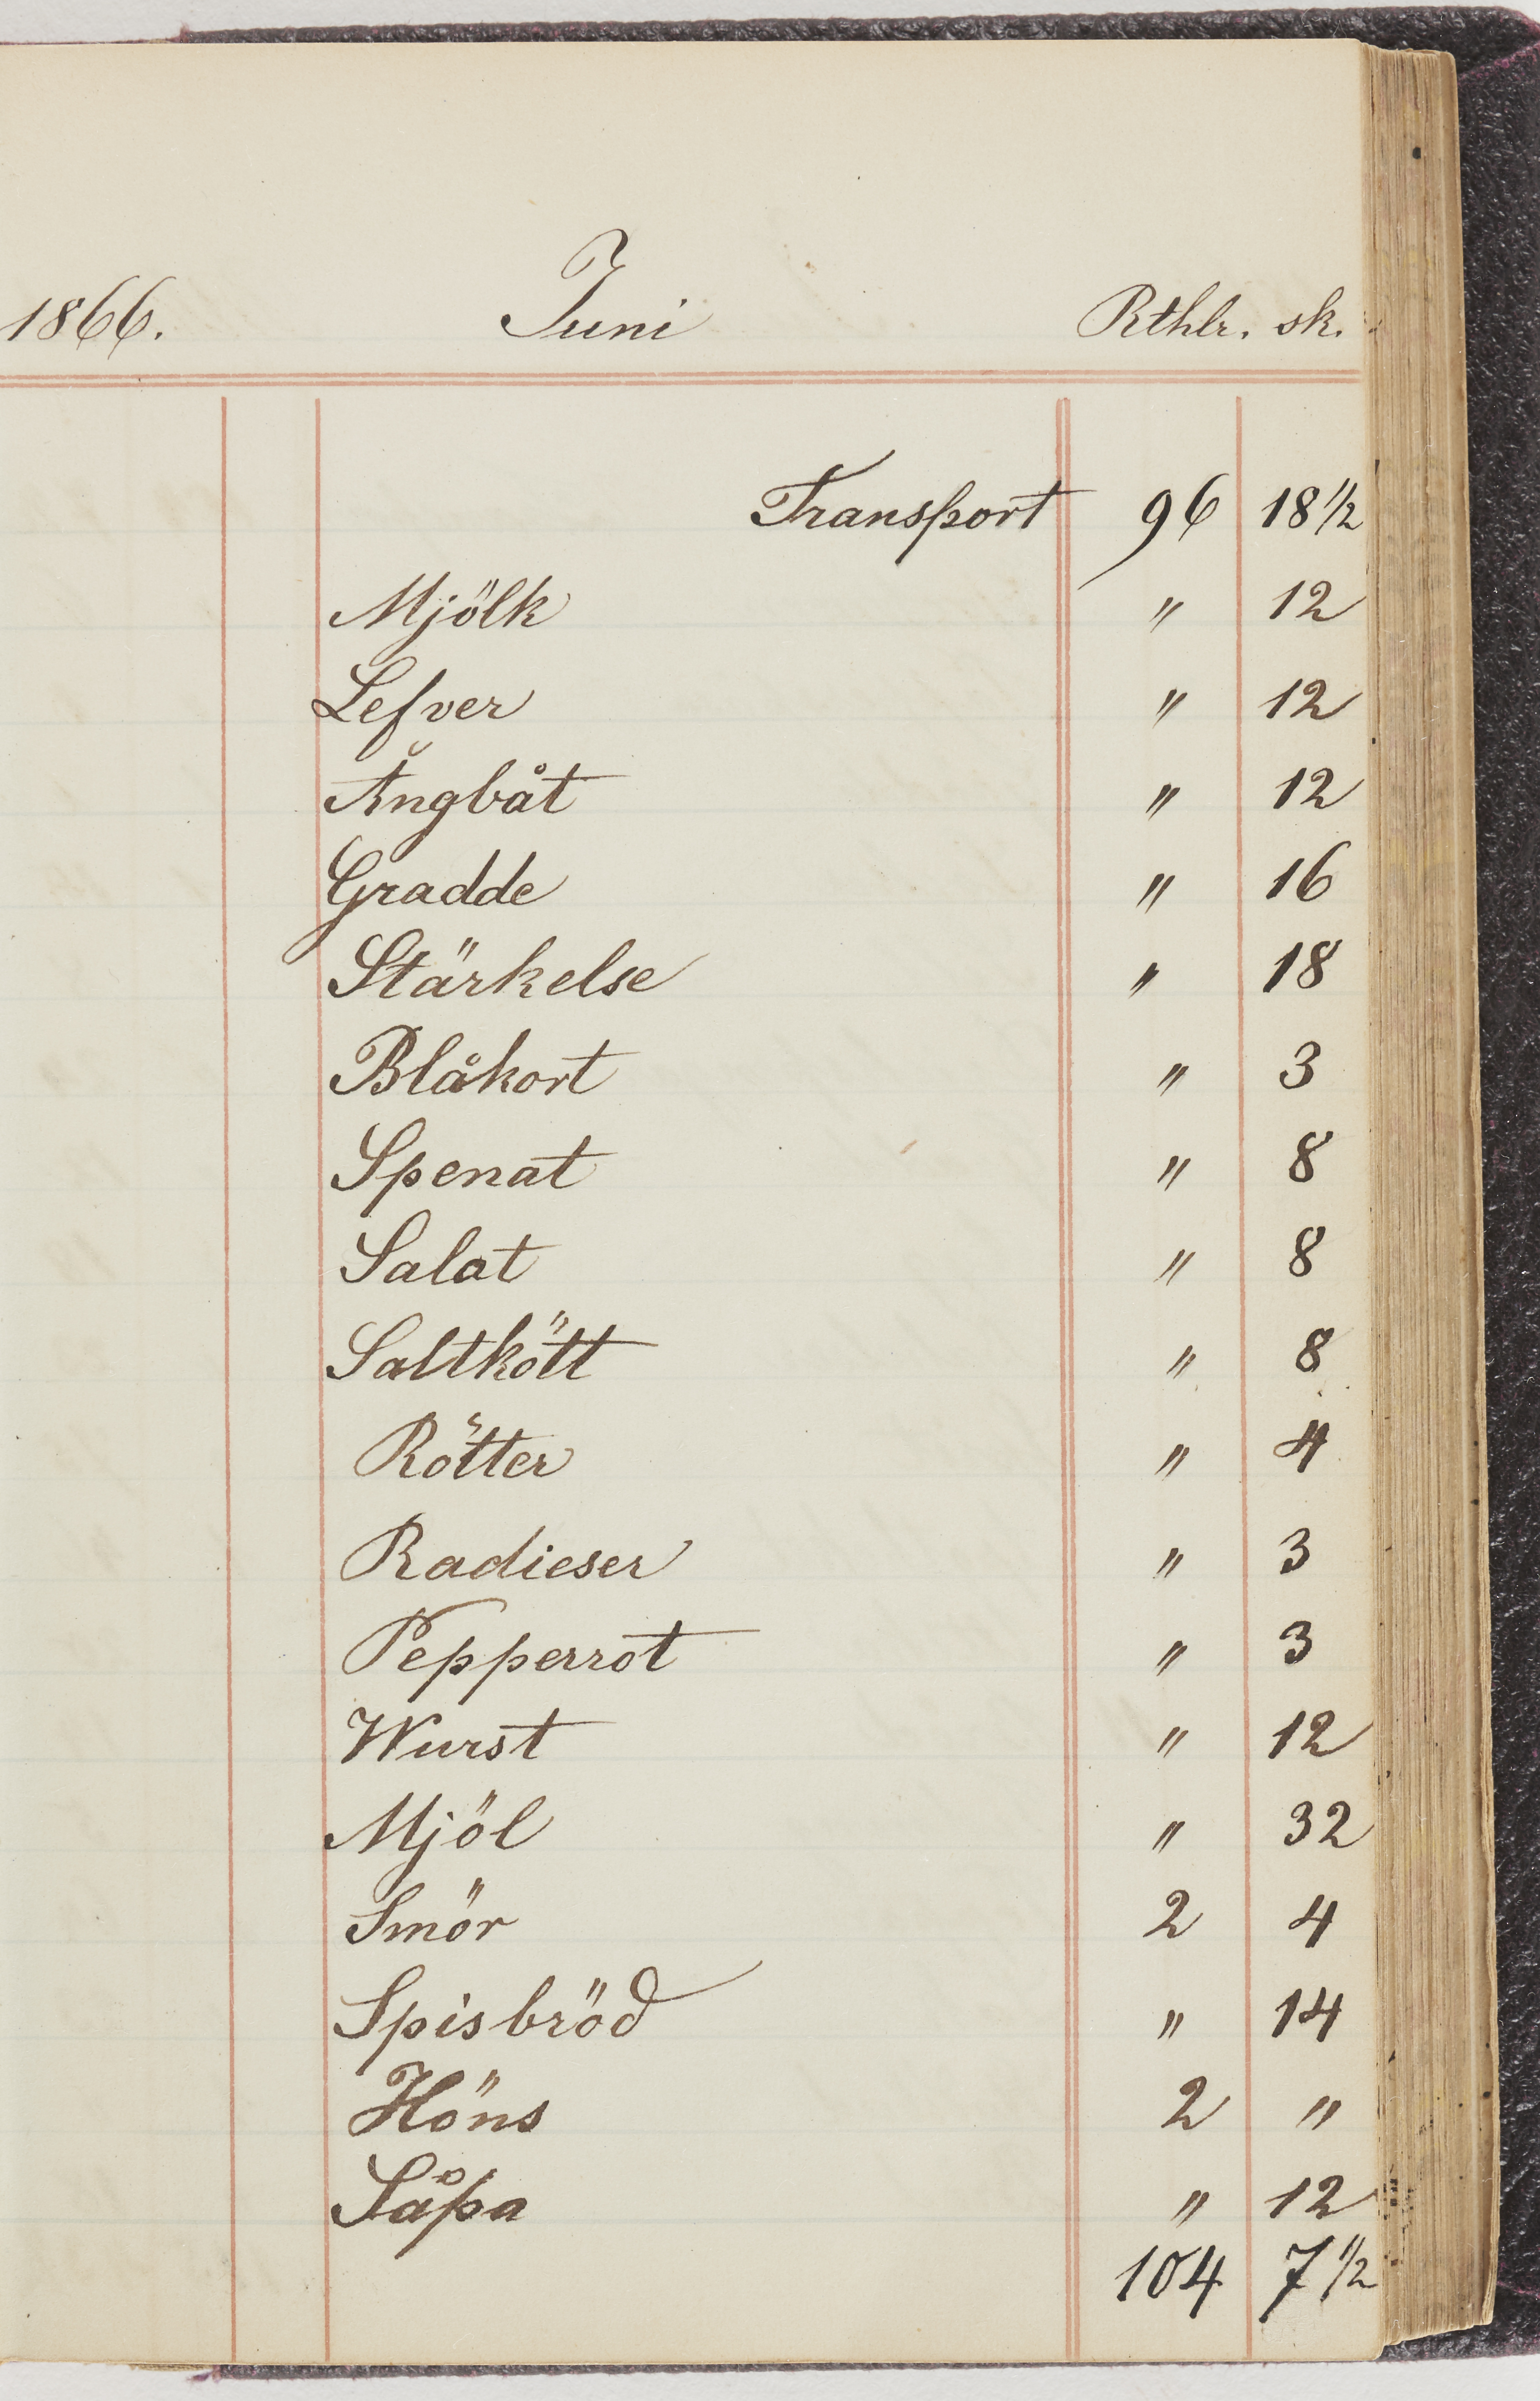 1866. Juni Rthlr. sk.
Transport 96 18 1/2
Mjölk " 12
Lefver " 12
Ångbåt " 12
Gradde " 16
Stärkelse " 18
Blåkort " 3
Spenat " 8
Salat " 8
Saltkött " 8
Rötter " 4
Radieser " 3
Pepperrot " 3
Wurst " 12
Mjöl " 32
Smör 2 4
Spisbröd " 14
Höns 2 "
Såpa " 12
104 7 1/2